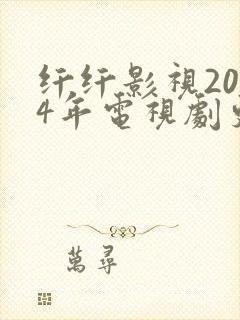 纤纤影視20
4年電視劇
萬尋